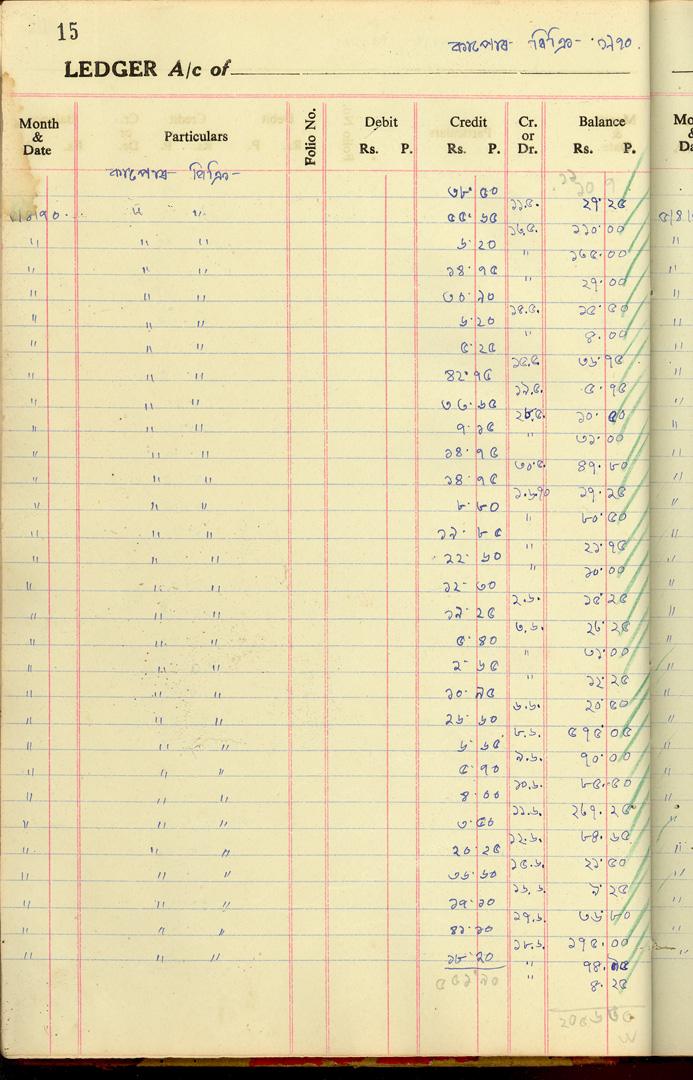 15
কাপোৰ বিক্ৰি- ১৯৭০.
LEDGER A/c of
Month & Date Particulars Folio No. Debit Rs. P. Credit Rs. P. Cr. or Dr. Balance Rs. P.
কাপোৰ বিক্ৰি-
৩৮·৫০
" " ৫৫·৬৫ ১১.৫. ২৭·২৫
" " " ৬·২০ ১৩.৫. ১১০·০০
" " " ১৪·৭৫ " ১৬৫·০০
" " " ৩০·৭০ " ২৭·০০
" " " ৬·২০ ১৪.৫. ১৫·৫০
" " " ৫·২৫ " ৪·০০
" " " ৪২·৭৫ ১৫.৫ ৩৬·৭৫
" " " ৩৩·৬৫ ১৯.৫. ৫·৭৫
" " " ৭·১৫ ২৮.৫. ১০·৫০
" " " ১৪·৭৫ " ৩১·০০
" " " ১৪·৭৫ ৩০.৫. ৪৭·৮০
" " " ৮·৮০ ১.৬.৭০ ১৭·২৫
" " " ১৯·৮৫ " ৮০·৫০
" " " ২২·৬০ " ২১·৭৫
" " " ১২·৩০ " ১০·০০
" " " ১৯·২৫ ২.৬. ১৫·২৫
" " " ৫·৪০ ৩.৬. ২৬·২৫
" " " ২·৬৫ " ৩১·০০
" " " ১০·৭৫ " ১২·২৫
" " " ২৬·৬০ ৬.৬. ২০·৫০
" " " ৬·৬৫ ৮.৬. ৫৭৫·০৫
" " " ৫·৭০ ৯.৬. ৭০·০০
" " " ৪·০০ ১০.৬. ৮৫·৫০
" " " ৩·৫০ ১১.৬. ২৬৭·২৫
" " " ২০·২৫ ১২.৬. ৮৪·৬৫
" " " ৩৬·৬০ ১৫.৬. ২১·৫০
" " " ১৭·১০ ১৬.৬. ৯·২৫
" " " ৪১·১০ ১৭.৬. ৩৬·৮০
" " " ১৮·২০ ১৮.৬. ১৭৫·০০
" ৭৪·৭৫
" ৪·২৫